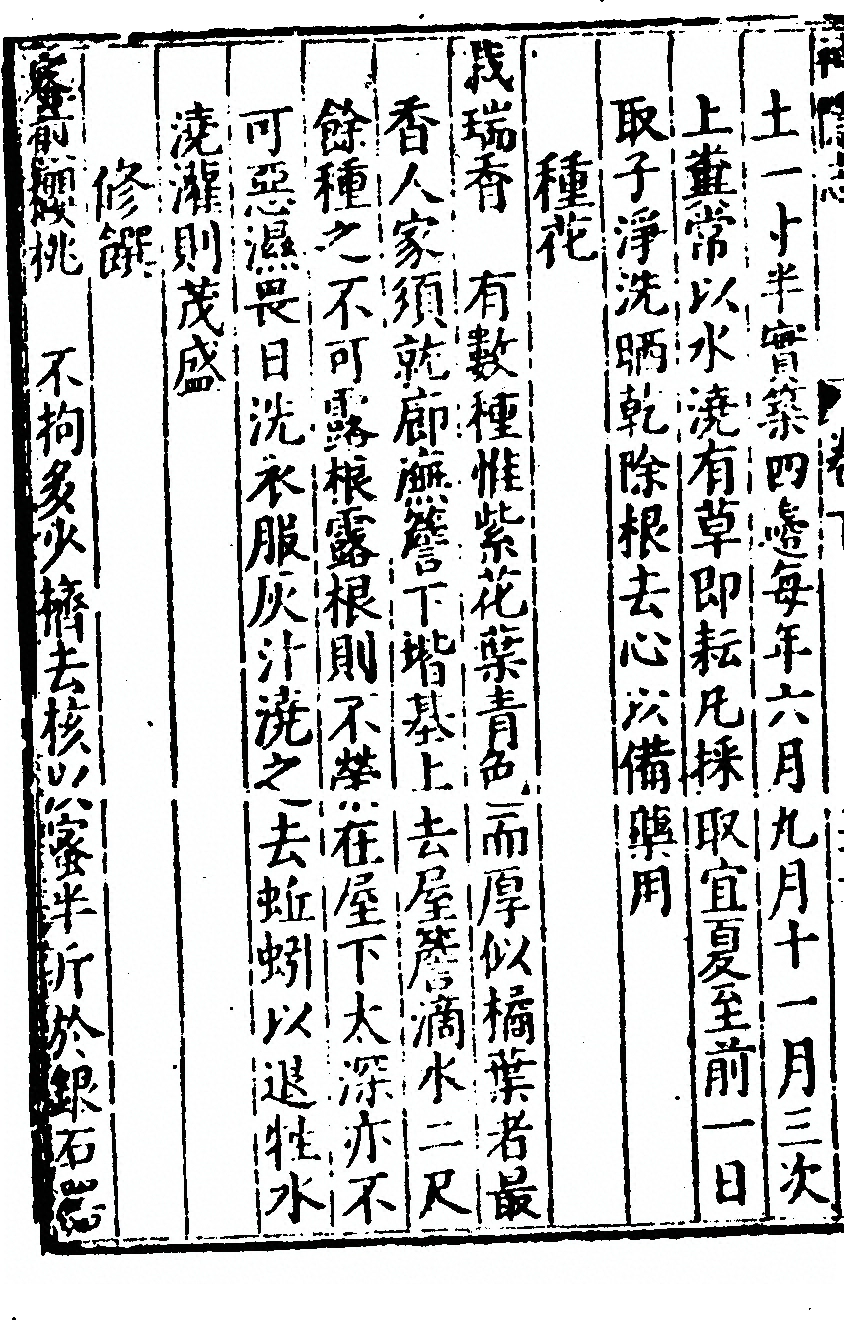 土一寸半實築四邉每年六月九月十一月三次
上糞常以水澆有草即耘凡採取宜夏至前一日
取子淨洗晒乾除根去心以備藥用
種花
栽瑞香 有數種惟紫花葉青色而厚似橘葉者最
香人家須就廊廡簷下堦基上去屋簷滴水二尺
餘種之不可露根露根則不榮在屋下太深亦不
可惡濕畏日洗衣服灰汁澆之去蚯蚓以退牲水
澆灌則茂盛
修饌
蜜煎櫻桃 不拘多少擠去核以蜜半斤於銀石